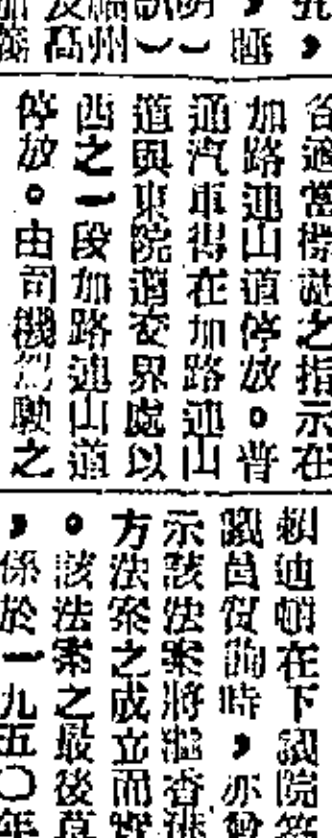 ，
及福
高州︶︶ 㕑，
合適當標誌之指示在
加路連山道停放。普
通汽車得在加路連山
道與東院道交界處以
西之一段加路連山道
停放。由司機駕駛之
賴迪頓在下議院
議員質詢時，亦
示該法案將繼香港
方法案之成立而實
。該法案之最後
，係於一九五〇年